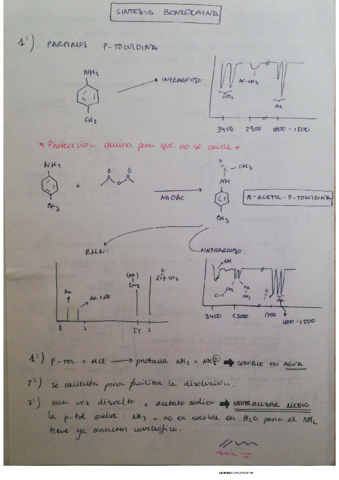 SINTESIS BENZOCAINA
1º) PARTIMOS P-TOLUIDINA
NH2
INFRARROJO:
CH3
NH2
Ar-CH3
Ar
3400 2900 1600-1500
* Protección amina para que no se oxide *
NH2
+
NaOAc
CH3
C
CH3
NH
CH3
N-ACETIL-P-TOLUIDINA
RMN:
INFRARROJO:
Ar
Ar
CH3
CH3
NH
CH3
8 7 2
3400 <3000 1700 1600-1500
1º) P-TOL + HCl → protona NH2 = NH3 ⊕ ⇒ SOLUBLE EN AGUA
2º) se calienta para facilitar la disolución.
3º) una vez disuelto + Acetato sodico ⇒ NEUTRALIZAR MEDIO
la p-tol vuelve: NH2 = no es soluble en H2O pero el NH2
tiene ya carácter nucleofilo.